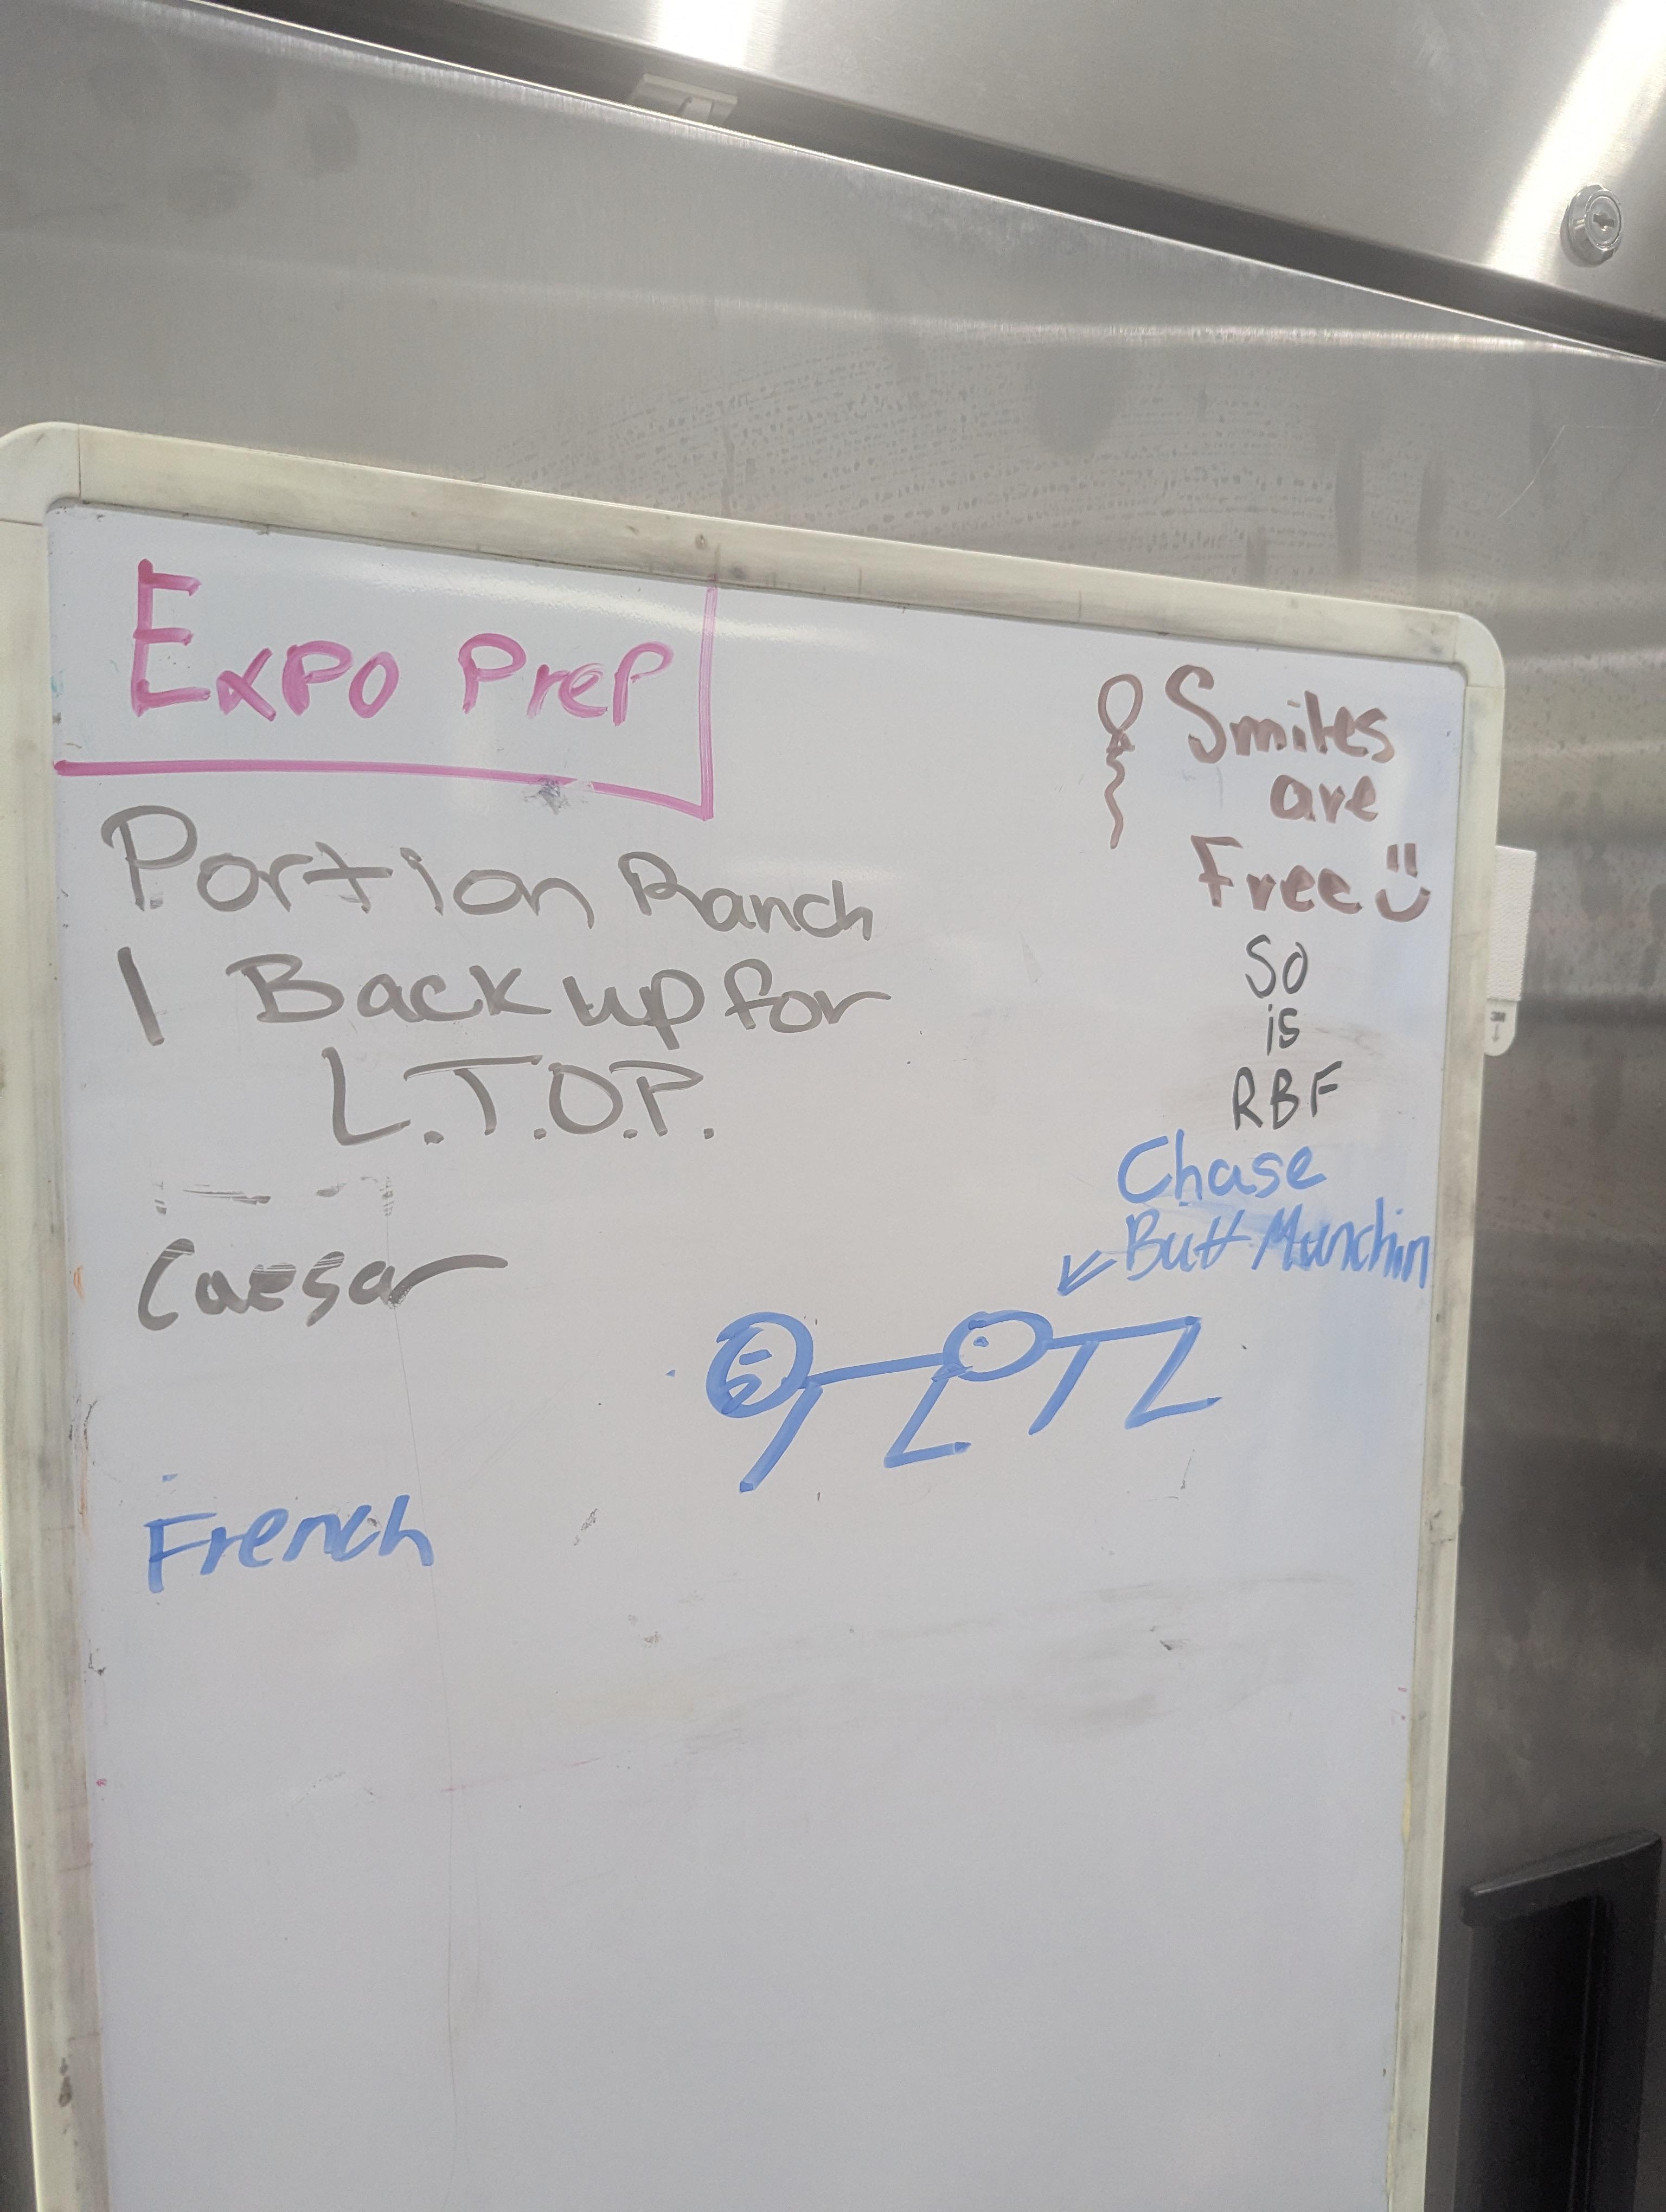 Expo Prep
Portion Ranch
1 Back up for
L.T.O.P.
Caesar
French
Smiles
are
Free
So
is
RBF
Chase
Butt Munchin